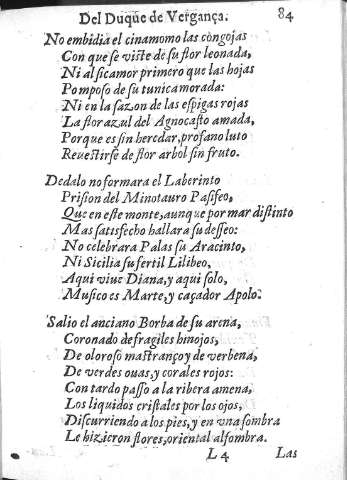 Del Duque de Vergança. 84
No embidia el cinamomo las congojas
Con que se viste de su flor leonada,
Ni al sicamor primero que las hojas
Pomposo de su tunica morada:
Ni en la sazon de las espigas rojas
La flor azul del Agnocasto amada,
Porque es sin heredar, profano luto
Reuestirse de flor arbol sin fruto.
Dedalo no formara el Laberinto
Prision del Minotauro Pasifeo,
Que en este monte, aunque por mar distinto
Mas satisfecho hallara su desseo:
No celebrara Palas su Aracinto,
Ni Sicilia su fertil Lilibeo,
Aqui viue Diana, y aqui solo,
Musico es Marte, y caçador Apolo.
Salio el anciano Borba de su arena,
Coronado de fragiles hinojos,
De oloroso mastranço y de verbena,
De verdes ouas, y corales rojos:
Con tardo passo a la ribera amena,
Los liquidos cristales por los ojos,
Discurriendo a los pies, y en vna sombra
Le hizieron flores, oriental alfombra.
L 4 Las